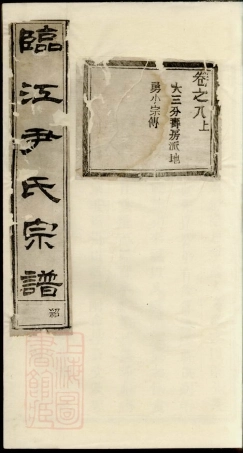 卷之八上
大三分壽房派地
勇小宗傳
臨江尹氏宗譜
上海圖書館